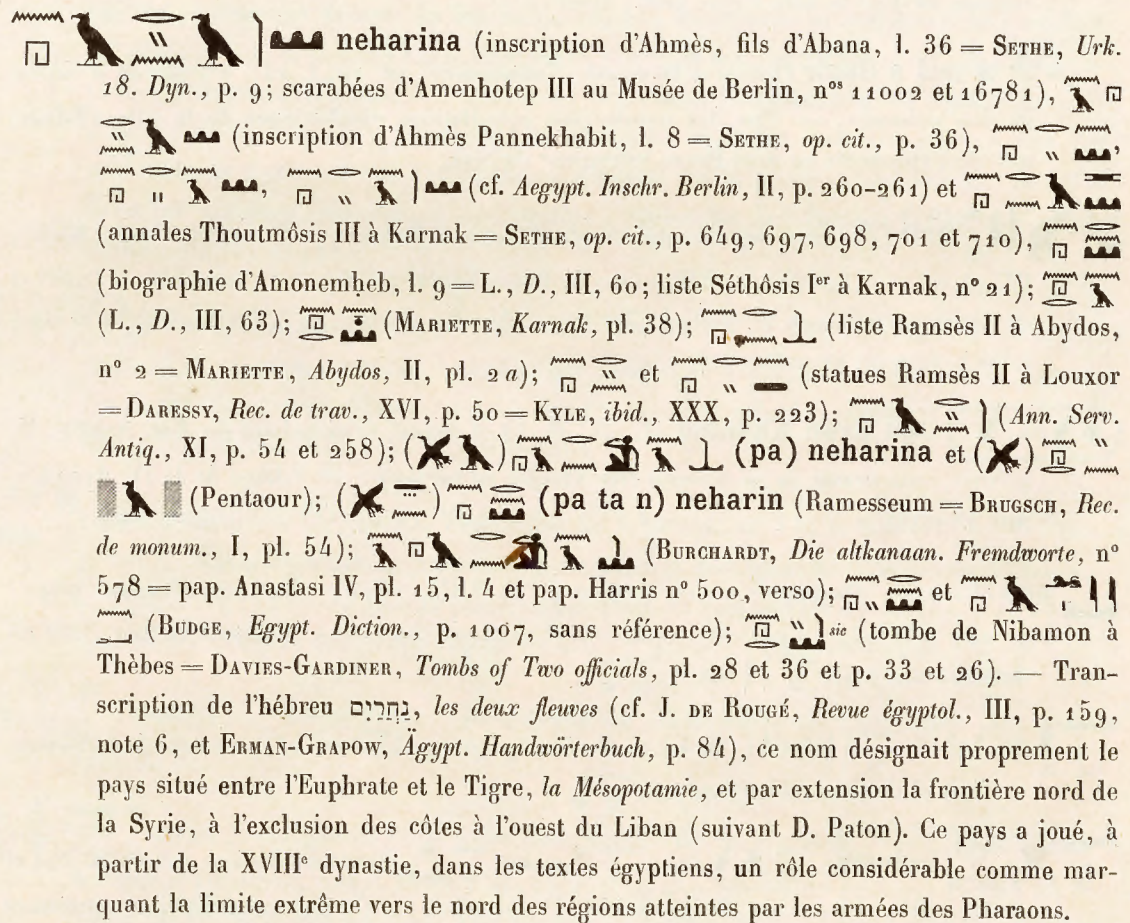 neharina (inscription d'Ahmès, fils d'Abana, l. 36 = Sethe, Urk.
18. Dyn., p. 9; scarabées d'Amenhotep III au Musée de Berlin, nos 11002 et 16781),
(inscription d'Ahmès Pannekhabit, l. 8 = Sethe, op. cit., p. 36),
(cf. Aegypt. Inschr. Berlin, II, p. 260-261) et
(annales Thoutmôsis III à Karnak = Sethe, op. cit., p. 649, 697, 698, 701 et 710),
(biographie d'Amonemḥeb, l. 9 = L., D., III, 60; liste Séthôsis Ier à Karnak, n° 21);
(L., D., III, 63); (Mariette, Karnak, pl. 38); (liste Ramsès II à Abydos,
n° 2 = Mariette, Abydos, II, pl. 2 a); et (statues Ramsès II à Louxor
= Daressy, Rec. de trav., XVI, p. 50 = Kyle, ibid., XXX, p. 223); (Ann. Serv.
Antiq., XI, p. 54 et 258); (pa) neharina et
(Pentaour); (pa ta n) neharin (Ramesseum = Brugsch, Rec.
de monum., I, pl. 54); (Burchardt, Die altkanaan. Fremdworte, n°
578 = pap. Anastasi IV, pl. 15, l. 4 et pap. Harris n° 500, verso); et
(Budge, Egypt. Diction., p. 1007, sans référence); sic (tombe de Nibamon à
Thèbes = Davies-Gardiner, Tombs of Two officials, pl. 28 et 36 et p. 33 et 26). — Tran-
scription de l'hébreu נַחֲרַיִם, les deux fleuves (cf. J. de Rougé, Revue égyptol., III, p. 159,
note 6, et Erman-Grapow, Ägypt. Handwörterbuch, p. 84), ce nom désignait proprement le
pays situé entre l'Euphrate et le Tigre, la Mésopotamie, et par extension la frontière nord de
la Syrie, à l'exclusion des côtes à l'ouest du Liban (suivant D. Paton). Ce pays a joué, à
partir de la XVIIIe dynastie, dans les textes égyptiens, un rôle considérable comme mar-
quant la limite extrême vers le nord des régions atteintes par les armées des Pharaons.